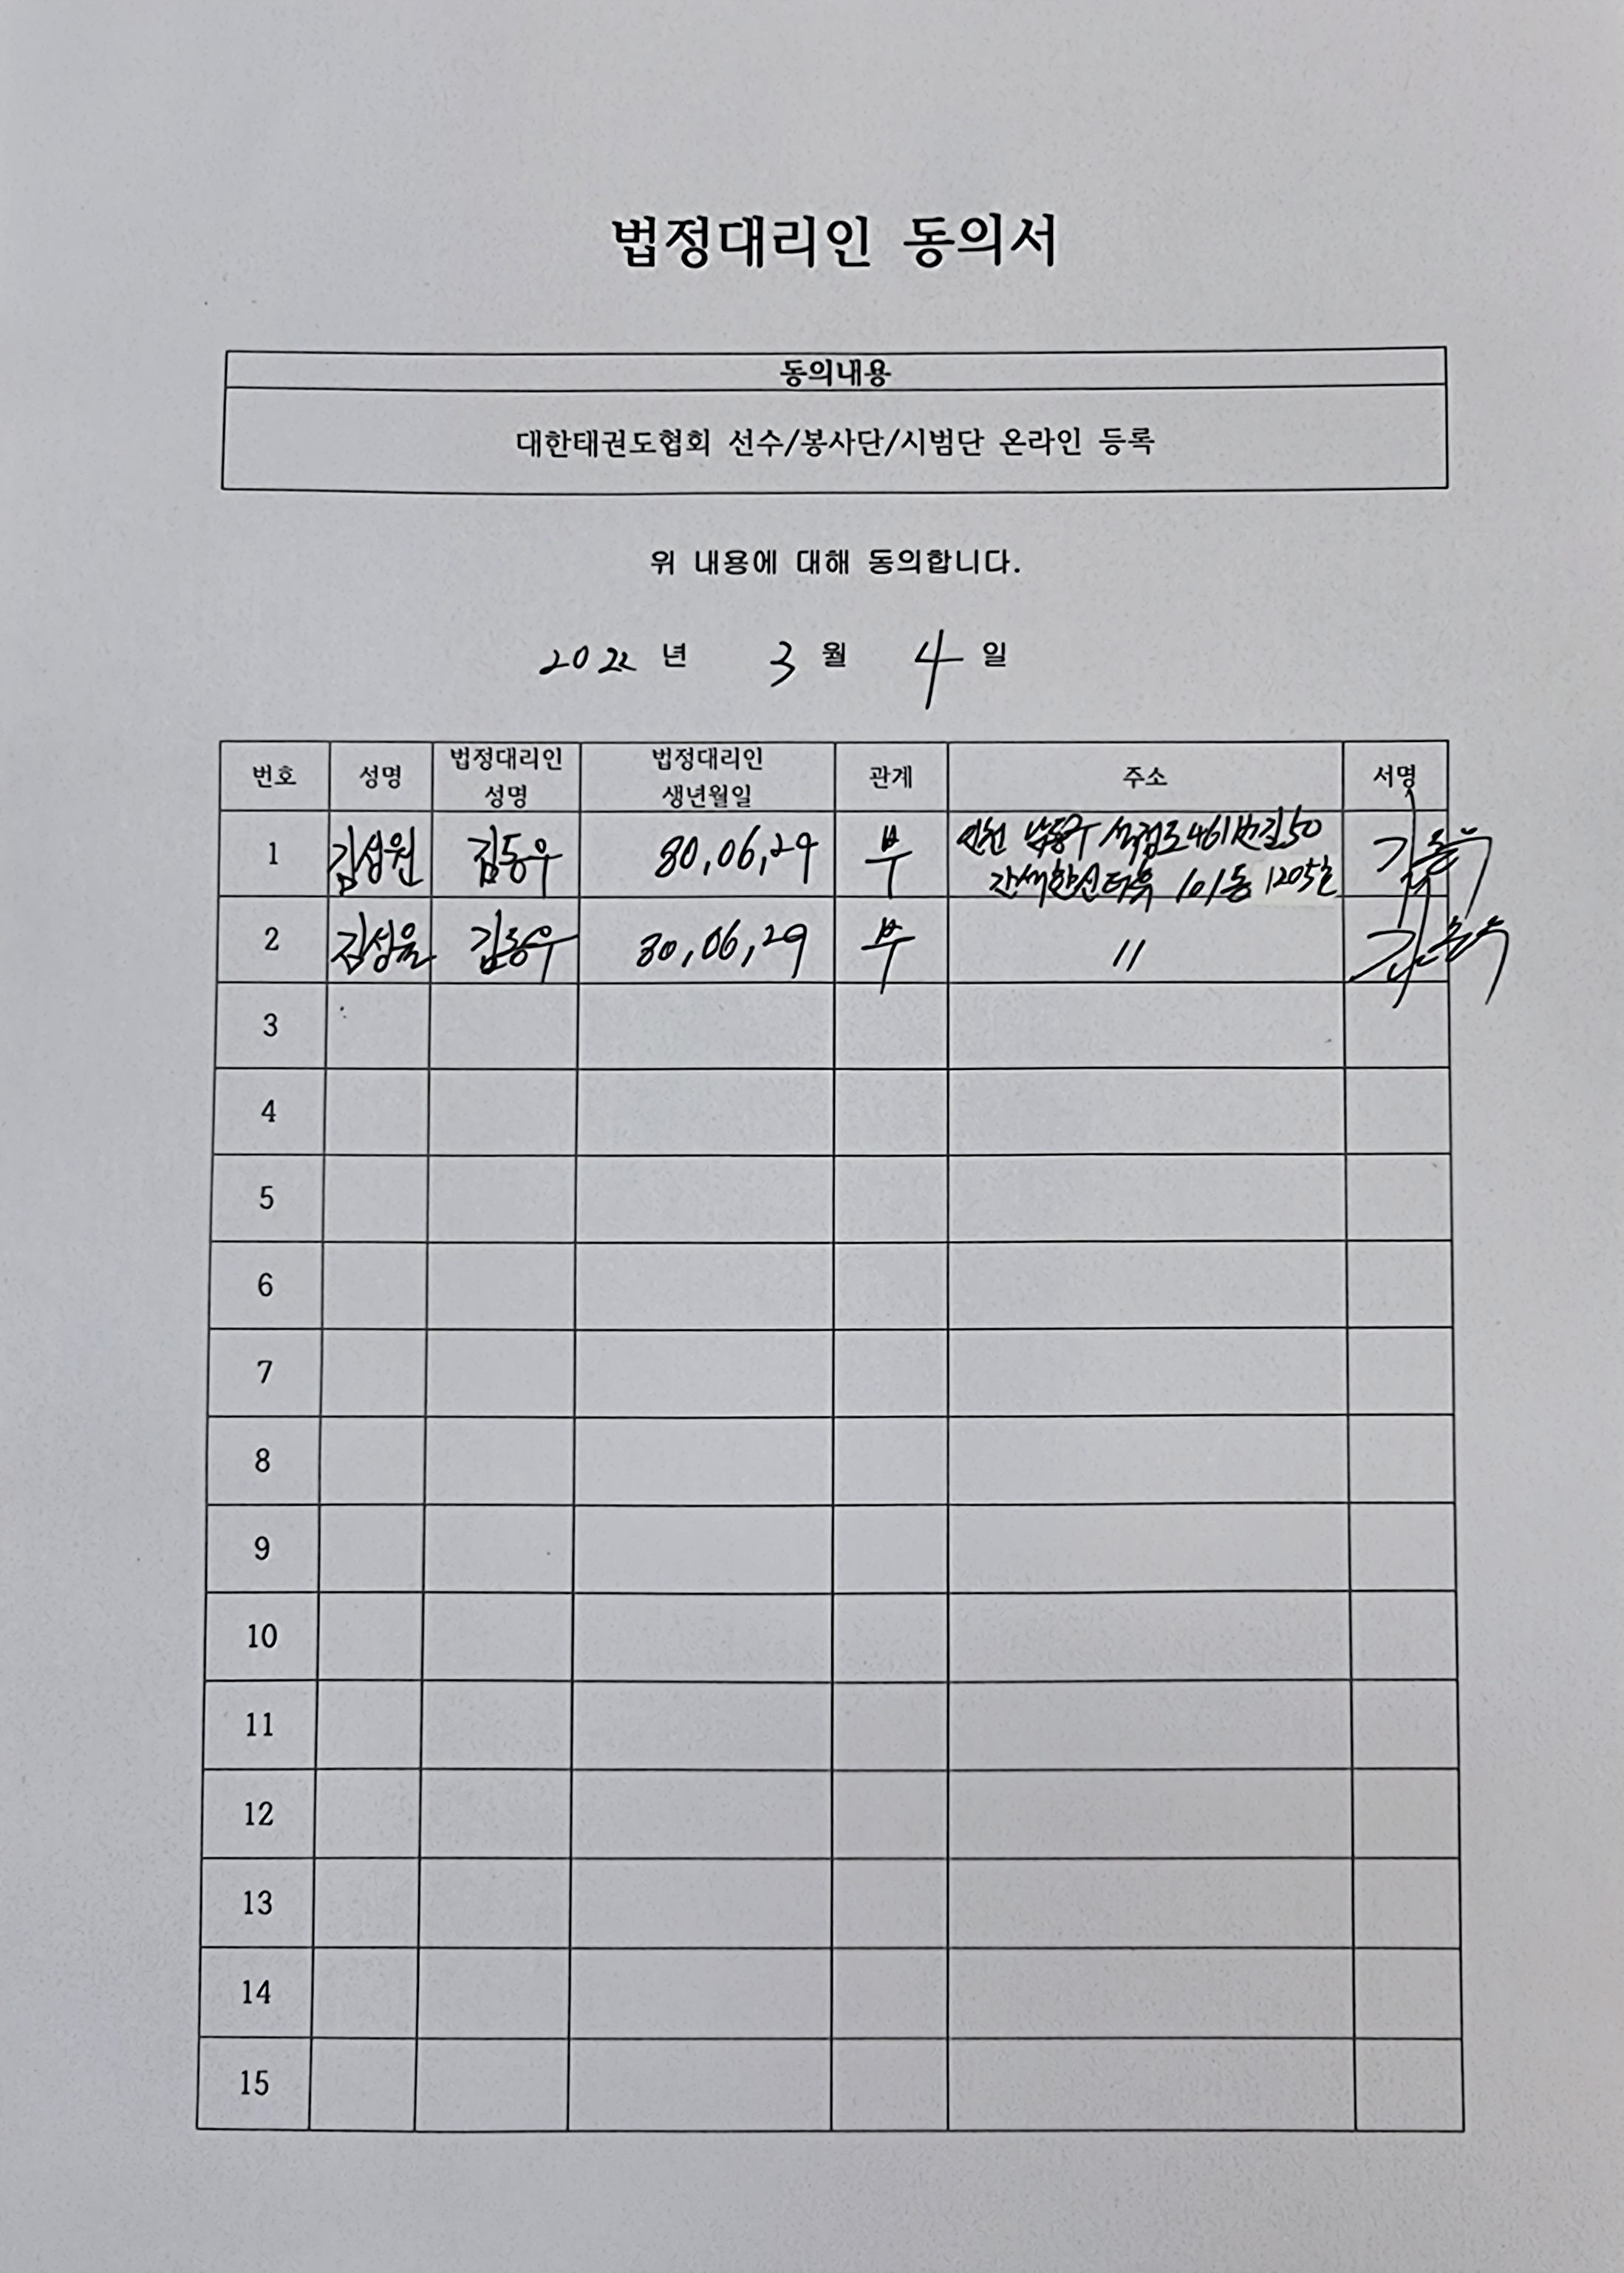 법정대리인 동의서
동의내용
대한태권도협회 선수/봉사단/시범단 온라인 등록
위 내용에 대해 동의합니다.
2022 년 3 월 4 일
번호 성명 법정대리인 성명 법정대리인 생년월일 관계 주소 서명
1 김성원 김동우 80,06,29 부 인천 남동구 석정로461번길50
한신더휴 101동 1205호 김동우
2 김성율 김동우 80,06,29 부 〃 김동우
3
4
5
6
7
8
9
10
11
12
13
14
15